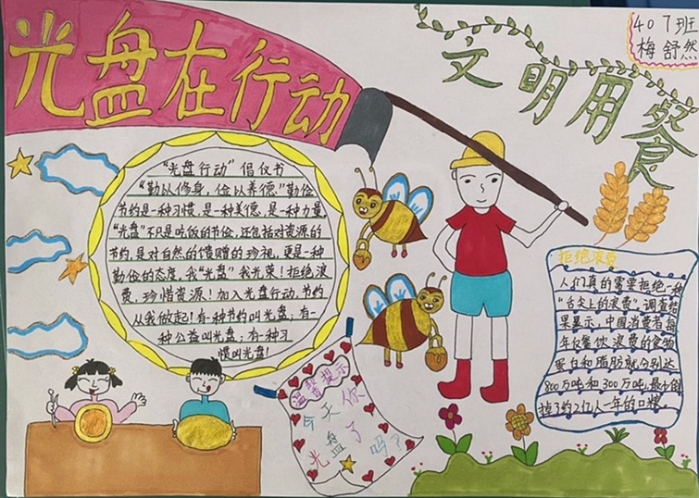 光盘在行动
文明用餐
407班
梅舒然
“光盘行动”倡仪书
“勤以修身，俭以养德。”勤俭
节约是一种习惯，是一种美德，是一种力量
“光盘”不只是吃饭的节俭，还包括对资源的
节约，是对自然的馈赠的珍视，更是一种
勤俭的态度，我“光盘”我光荣！拒绝浪
费，珍惜资源！加入光盘行动，节约
从我做起！有一种节约叫光盘，有一
种公益叫光盘，有一种习
惯叫光盘！
拒绝浪费
人们真的需要拒绝一种
“舌尖上的浪费”，调查结
果显示，中国消费者每
年仅餐饮浪费的食物
蛋白和脂肪就分别达
800万吨和300万吨，最少倒
掉了约2亿人一年的口粮。
温馨提示
今天你
光盘了
吗？